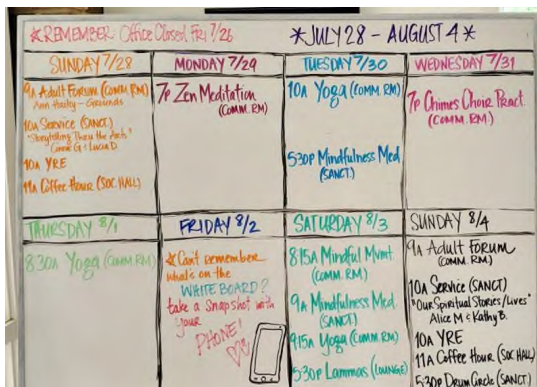 *REMEMBER Office Closed Fri 7/26
*JULY 28 - AUGUST 4*
SUNDAY 7/28
9A Adult Forum (COMM. RM)
Grounds
10A Service (SANCT.)
"Storytelling Thru the Arts"
Connie G & Lucia D.
10A YRE
11A Coffee Hour (SOC. HALL)
MONDAY 7/29
7P Zen Meditation
(COMM. RM)
TUESDAY 7/30
10A Yoga (COMM. RM)
530P Mindfulness Med.
(SANCT.)
WEDNESDAY 7/31
7P Chimes Choir Pract.
(COMM. RM.)
THURSDAY 8/1
830A Yoga (COMM RM)
FRIDAY 8/2
*Can't remember
what's on the
WHITE BOARD?
take a snapshot with
your
PHONE!
SATURDAY 8/3
815A Mindful Mvmt.
(COMM. RM)
9A Mindfulness Med.
(SANCT)
915A Yoga (COMM RM)
530P Lammas (LOUNGE)
SUNDAY 8/4
9A Adult FORUM
(COMM. RM)
10A Service (SANCT)
"Our Spiritual Stories/Lives"
Alice M & Kathy B.
10A YRE
11A Coffee Hour (SOC HALL)
530P Drum Circle (SANCT)